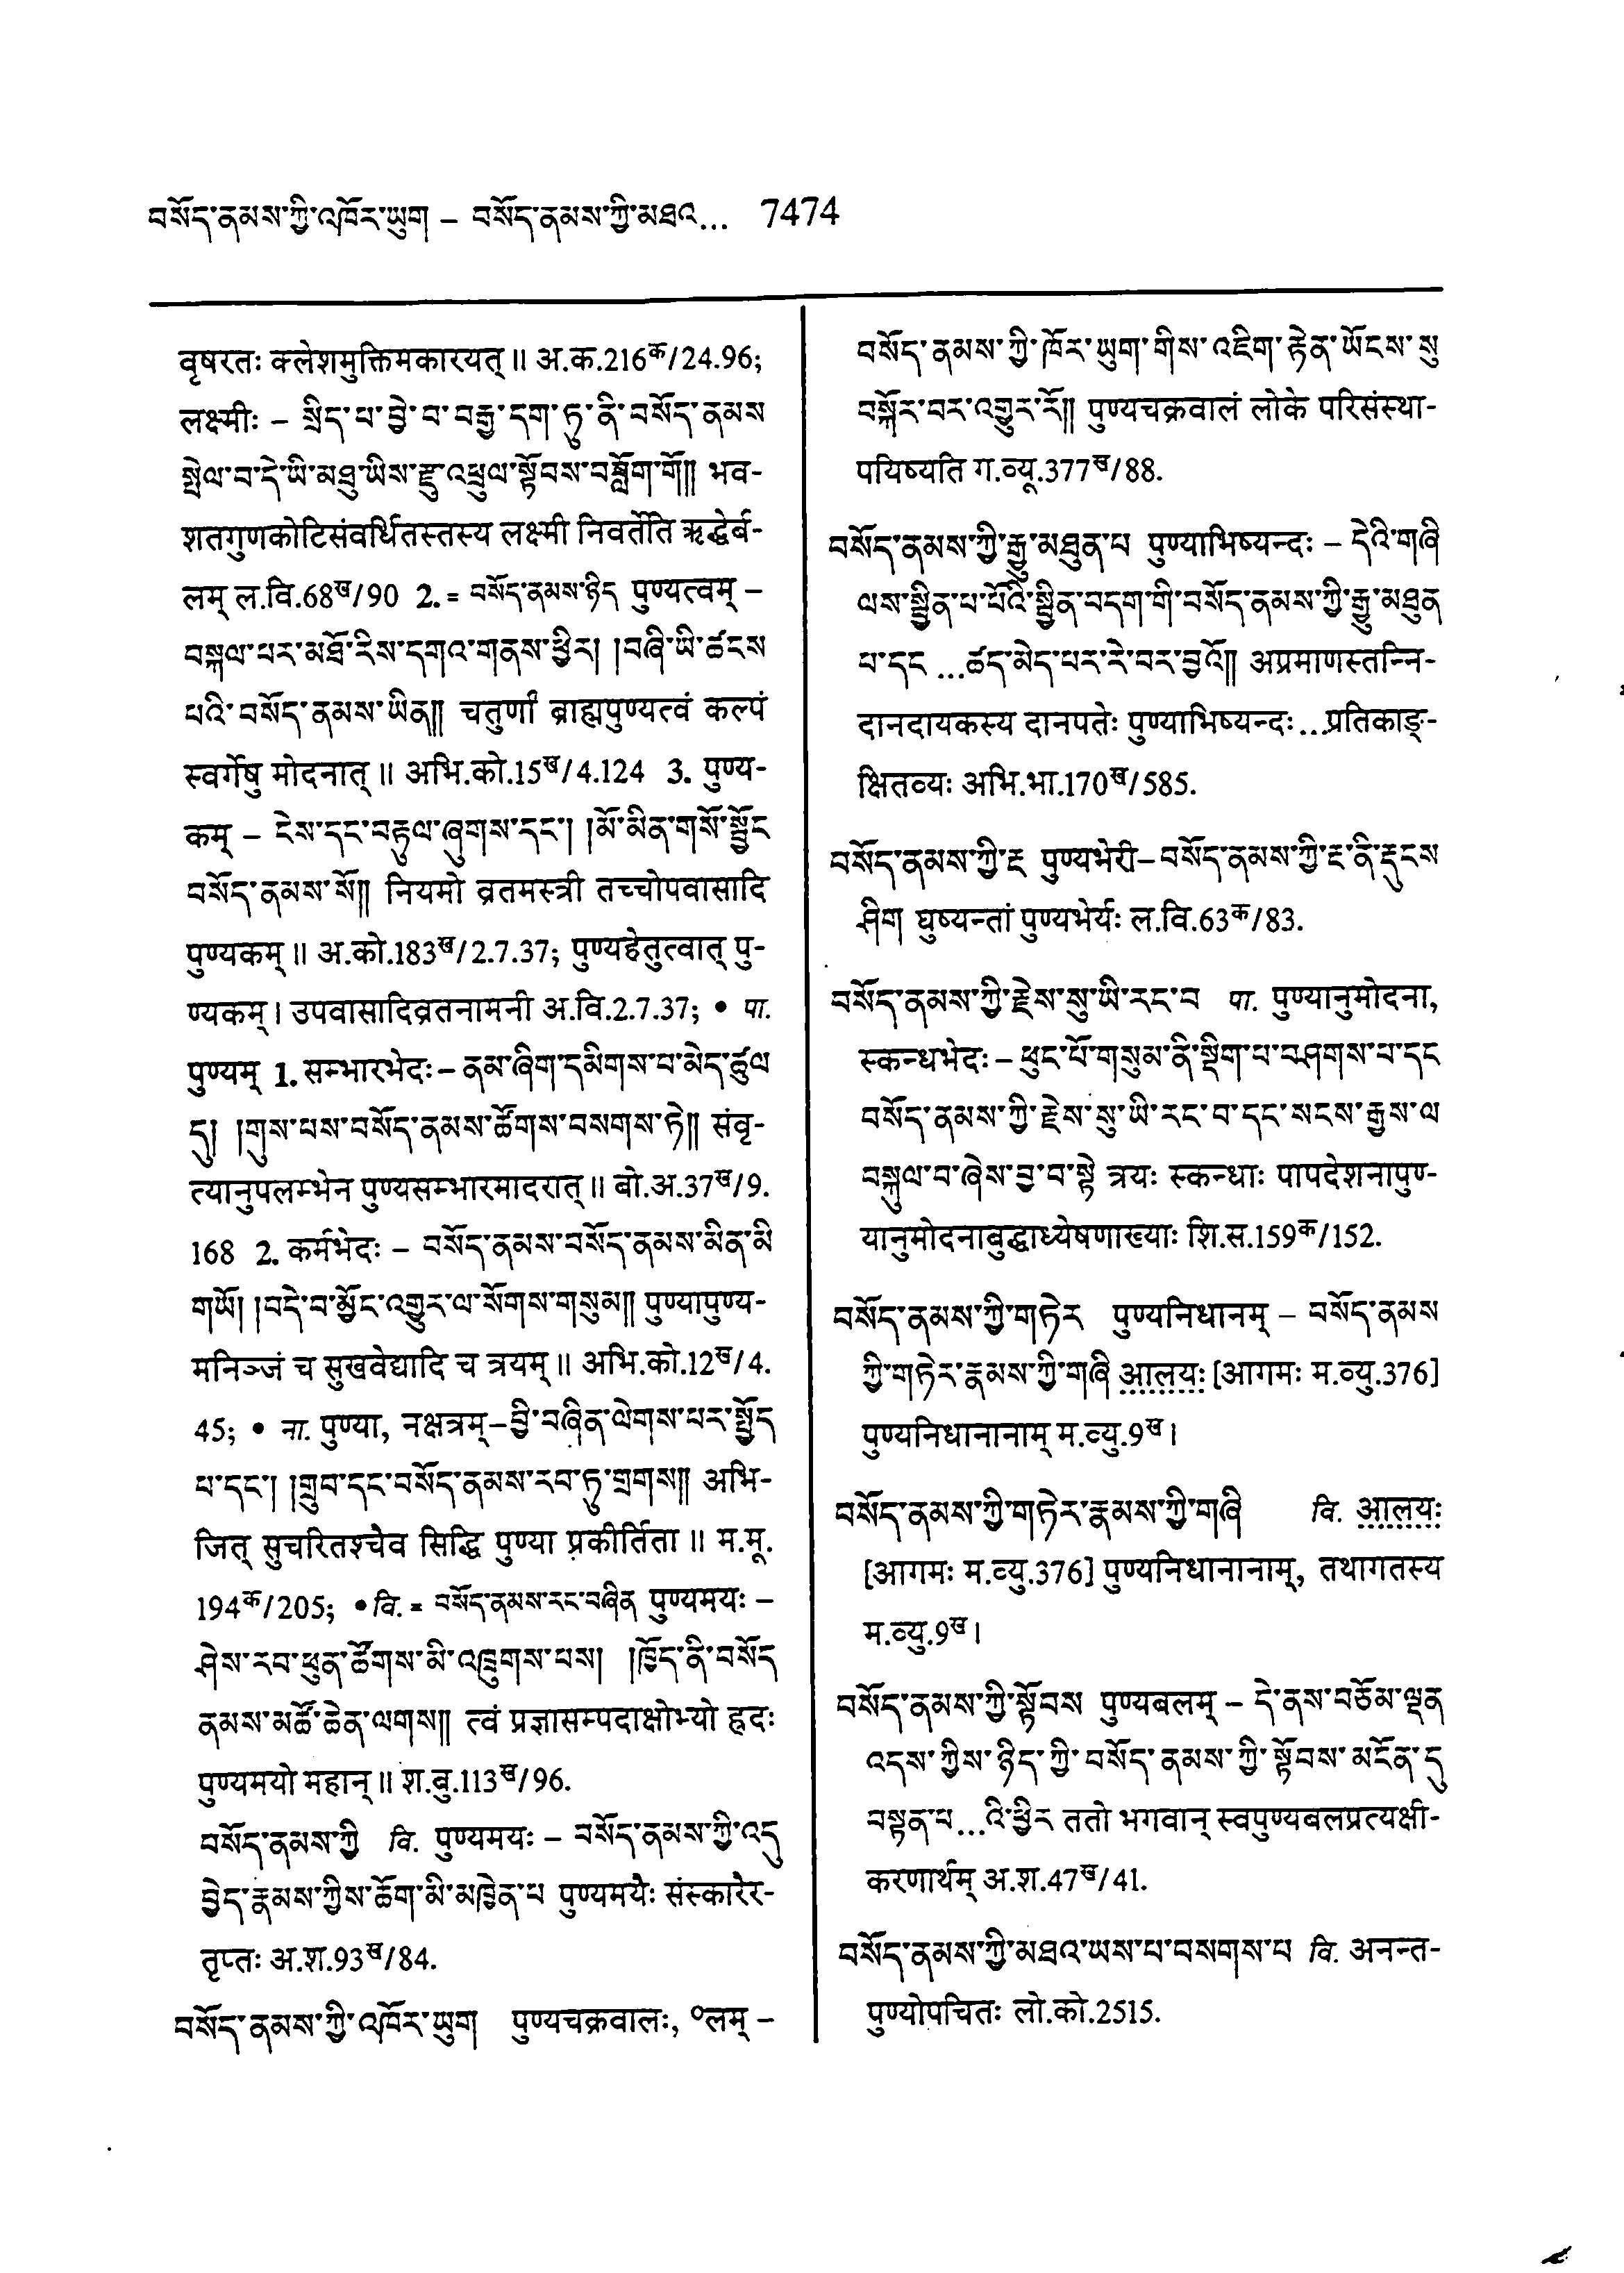 བསོད་ནམས་ཀྱི་འཁོར་ཡུག – བསོད་ནམས་ཀྱི་མཐའ... 7474
वृषरतः क्लेशमुक्तिमकारयत् ॥ अ.क.216क/24.96;
लक्ष्मीः – སྲིད་པ་བྱེ་བ་བརྒྱ་དག་ཏུ་ནི་བསོད་ནམས
སྤེལ་བ་དེ་ཡི་མཐུ་ཡིས་རྫུ་འཕྲུལ་སྟོབས་བསློག་གོ།། भव-
शतगुणकोटिसंवर्धितस्तस्य लक्ष्मी निवर्तेति ऋद्धेर्ब-
लम् ल.वि.68ख/90 2. = བསོད་ནམས་ཉིད पुण्यत्वम् –
བསྐལ་པར་མཐོ་རིས་དགའ་གནས་ཕྱིར། །བཞི་ཡི་ཚངས
པའི་བསོད་ནམས་ཡིན།། चतुर्णां ब्राह्मपुण्यत्वं कल्पं
स्वर्गेषु मोदनात् ॥ अभि.को.15ख/4.124 3. पुण्य-
कम् – ངེས་དང་བརྟུལ་ཞུགས་དང་། །མོ་མིན་གསོ་སྦྱོང
བསོད་ནམས་སོ།། नियमो व्रतमस्त्री तच्चोपवासादि
पुण्यकम् ॥ अ.को.183ख/2.7.37; पुण्यहेतुत्वात् पु-
ण्यकम्। उपवासादिव्रतनामनी अ.वि.2.7.37; • पा.
पुण्यम् 1. सम्भारभेदः – ནམ་ཞིག་དམིགས་པ་མེད་ཚུལ
དུ། །གུས་པས་བསོད་ནམས་ཚོགས་བསགས་ཏེ།། संवृ-
त्यानुपलम्भेन पुण्यसम्भारमादरात् ॥ बो.अ.37ख/9.
168 2. कर्मभेदः – བསོད་ནམས་བསོད་ནམས་མིན་མི
གཡོ། །བདེ་བ་མྱོང་འགྱུར་ལ་སོགས་གསུམ།། पुण्यापुण्य-
मनिञ्जं च सुखवेद्यादि च त्रयम् ॥ अभि.को.12ख/4.
45; • ना. पुण्या, नक्षत्रम् – བྱི་བཞིན་ལེགས་པར་སྤྱོད
པ་དང་། །གྲུབ་དང་བསོད་ནམས་རབ་ཏུ་གྲགས།། अभि-
जित् सुचरितश्चैव सिद्धि पुण्या प्रकीर्तिता ॥ म.मू.
194क/205; • वि. = བསོད་ནམས་རང་བཞིན पुण्यमयः –
ཤེས་རབ་ཕུན་ཚོགས་མི་འཁྲུགས་པས། །ཁྱོད་ནི་བསོད
ནམས་མཚོ་ཆེན་ལགས།། त्वं प्रज्ञासम्पदाक्षोभ्यो ह्रदः
पुण्यमयो महान् ॥ श.बु.113ख/96.
བསོད་ནམས་ཀྱི वि. पुण्यमयः – བསོད་ནམས་ཀྱི་འདུ
བྱེད་རྣམས་ཀྱིས་ཆོག་མི་མཁྱེན་པ पुण्यमयैः संस्कारैर-
तृप्तः अ.श.93ख/84.
བསོད་ནམས་ཀྱི་འཁོར་ཡུག पुण्यचक्रवालः, °लम् –
བསོད་ནམས་ཀྱི་ཁོར་ཡུག་གིས་འཇིག་རྟེན་ཡོངས་སུ
བསྐོར་བར་འགྱུར་རོ།། पुण्यचक्रवालं लोके परिसंस्था-
पयिष्यति ग.व्यू.377ख/88.
བསོད་ནམས་ཀྱི་རྒྱུ་མཐུན་པ पुण्याभिष्यन्दः – དེའི་གཞི
ལས་སྦྱིན་པ་པོའི་སྦྱིན་བདག་གི་བསོད་ནམས་ཀྱི་རྒྱུ་མཐུན
པ་དང ...ཚད་མེད་པར་རེ་བར་བྱའོ།། अप्रमाणस्तन्नि-
दानदायकस्य दानपतेः पुण्याभिष्यन्दः...प्रतिकाङ्-
क्षितव्यः अभि.भा.170ख/585.
བསོད་ནམས་ཀྱི་རྔ पुण्यभेरी – བསོད་ནམས་ཀྱི་རྔ་ནི་རྡུངས
ཤིག घुष्यन्तां पुण्यभेर्यः ल.वि.63क/83.
བསོད་ནམས་ཀྱི་རྗེས་སུ་ཡི་རང་བ पा. पुण्यानुमोदना,
स्कन्धभेदः – ཕུང་པོ་གསུམ་ནི་སྡིག་པ་བཤགས་པ་དང
བསོད་ནམས་ཀྱི་རྗེས་སུ་ཡི་རང་བ་དང་སངས་རྒྱས་ལ
བསྐུལ་བ་ཞེས་བྱ་བ་སྟེ त्रयः स्कन्धाः पापदेशनापुण्-
यानुमोदनाबुद्धाध्येषणाख्याः शि.स.159क/152.
བསོད་ནམས་ཀྱི་གཏེར पुण्यनिधानम् – བསོད་ནམས
ཀྱི་གཏེར་རྣམས་ཀྱི་གཞི आलयः [आगमः म.व्यु.376]
पुण्यनिधानानाम् म.व्यु.9ख।
བསོད་ནམས་ཀྱི་གཏེར་རྣམས་ཀྱི་གཞི वि. आलयः
[आगमः म.व्यु.376] पुण्यनिधानानाम्, तथागतस्य
म.व्यु.9ख।
བསོད་ནམས་ཀྱི་སྟོབས पुण्यबलम् – དེ་ནས་བཅོམ་ལྡན
འདས་ཀྱིས་ཉིད་ཀྱི་བསོད་ནམས་ཀྱི་སྟོབས་མངོན་དུ
བསྟན་པ...འི་ཕྱིར ततो भगवान् स्वपुण्यबलप्रत्यक्षी-
करणार्थम् अ.श.47ख/41.
བསོད་ནམས་ཀྱི་མཐའ་ཡས་པ་བསགས་པ वि. अनन्त-
पुण्योपचितः लो.को.2515.